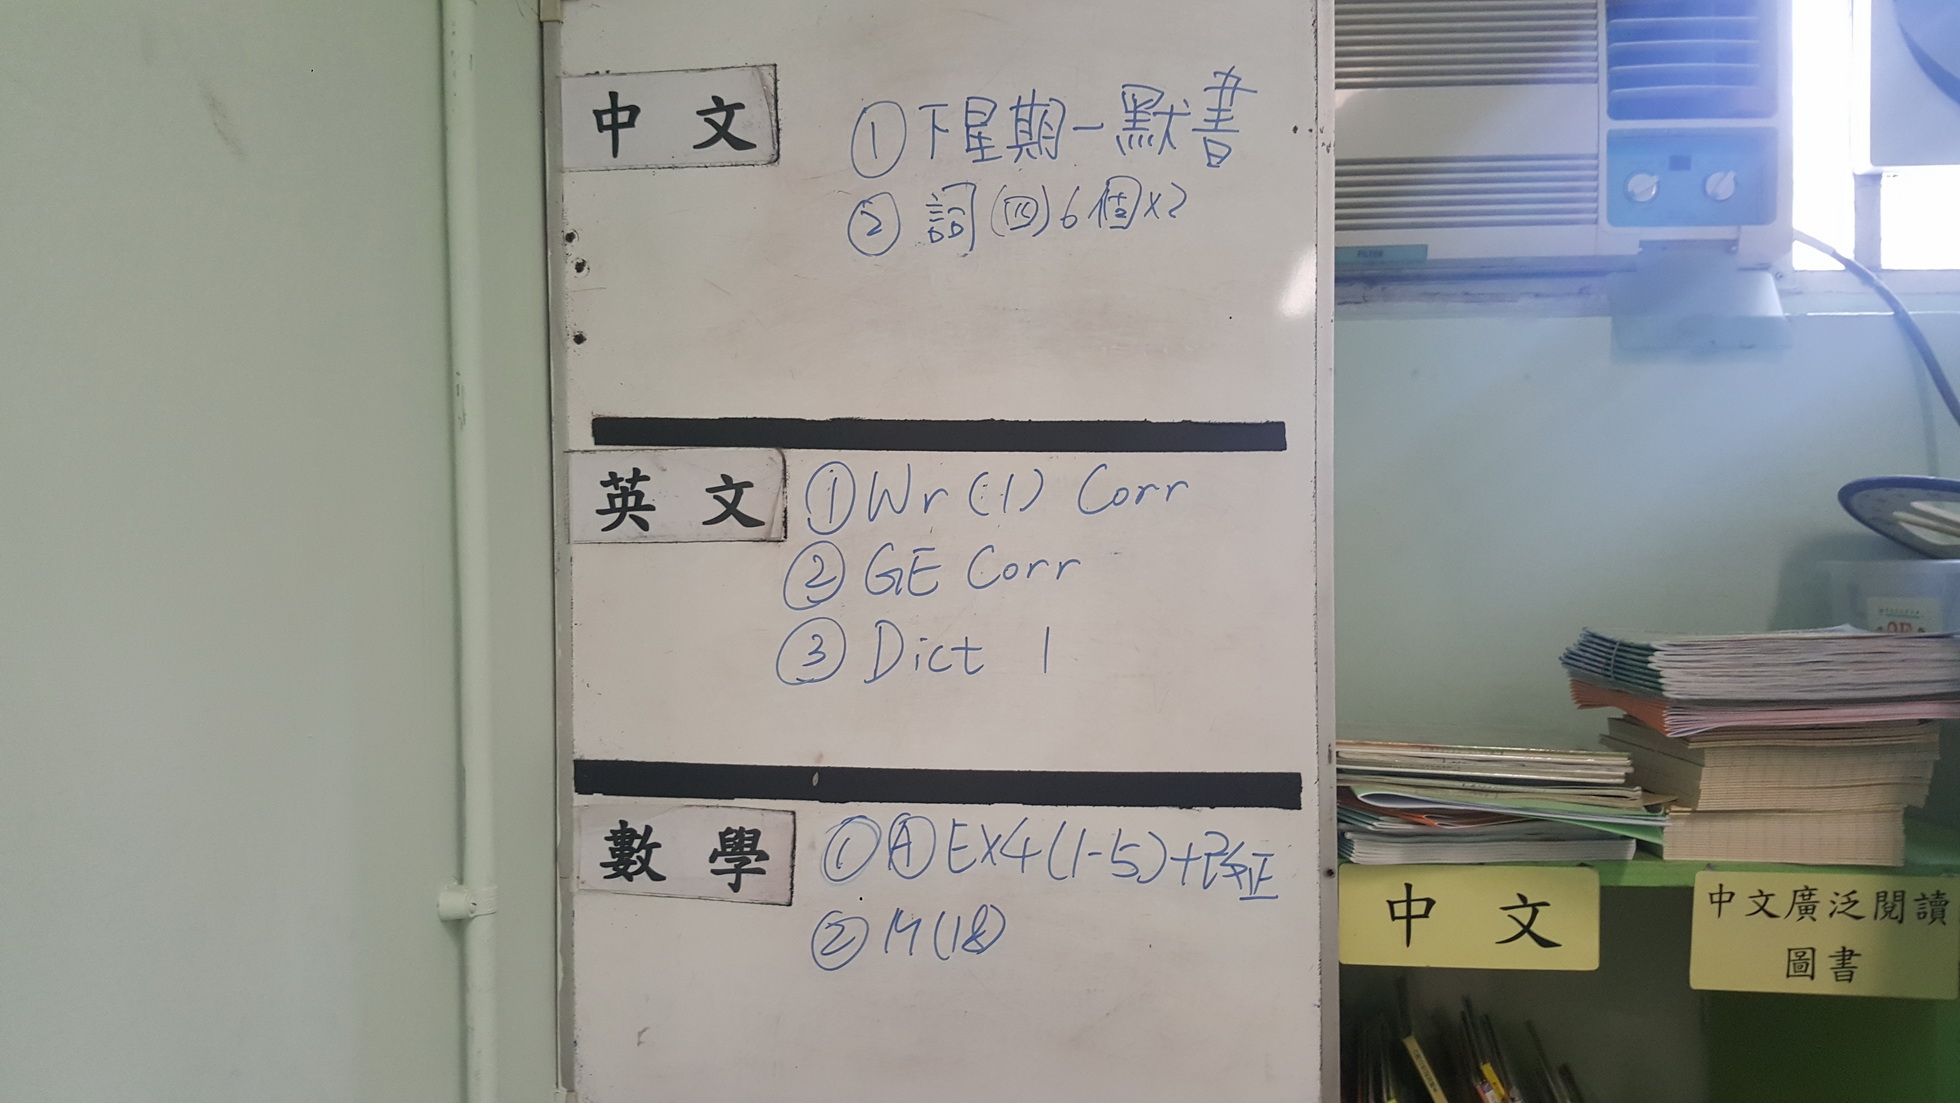 中文
① 下星期一默書
② 詞(四)6個x2
英文
① Wr (1) Corr
② GE Corr
③ Dict 1
數學
① Ⓐ EX4 (1-5)+改正
② M(18)
FILTER
中文
中文廣泛閱讀
圖書